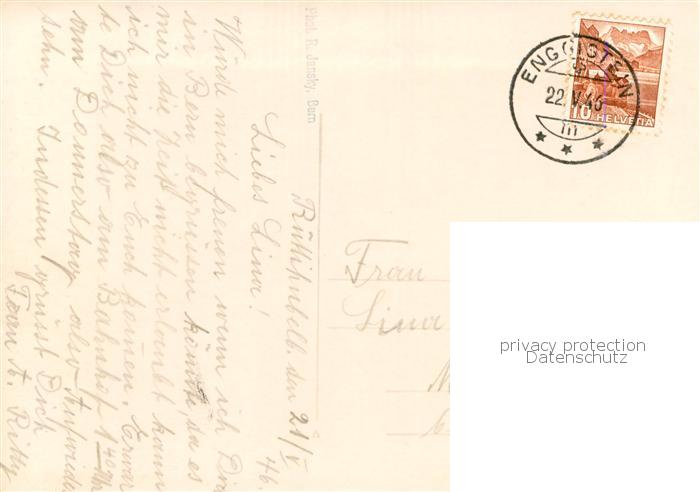 Rüttihubelb. den 21/V 46.
Liebes Lina!
Würde mich freuen wenn ich Dich
in Bern begrüssen könnte, da es
mir die Zeit nicht erlaubt kann
ich nicht zu Euch kommen. Erwar
te Dich also am Bahnhof 1 40 Uhr
am Donnerstag also Aufwieder
sehn. Indessen grüsst Dich
Frau A.
Phot. R. Jansky, Bern
ENGGISTEIN
22.V.46
10 HELVETIA
Frau
Lina
privacy protection
Datenschutz